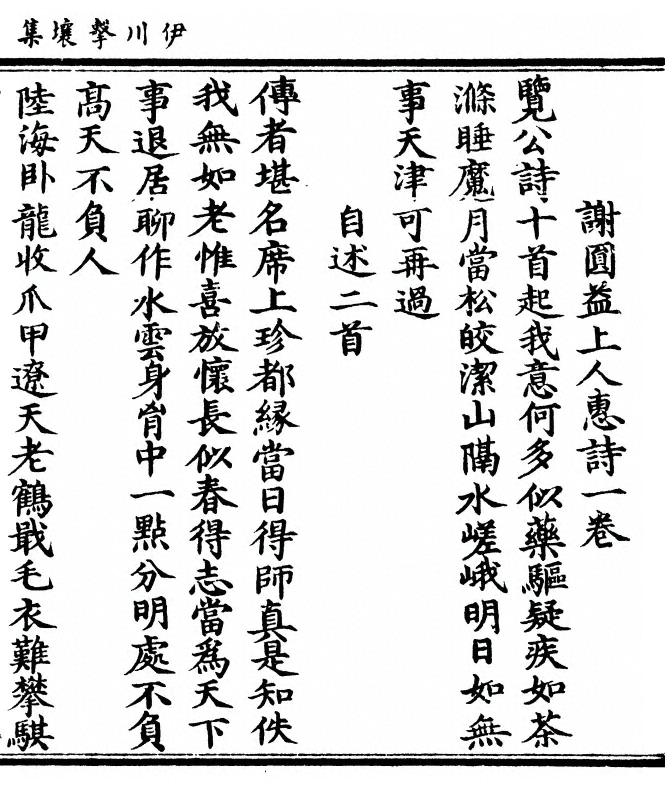 伊川擊壤集
謝圓益上人惠詩一卷
覽公詩十首起我意何多似藥驅疑疾如茶
滌睡魔月當松皎潔山隔水嵯峨明日如無
事天津可再過
自述二首
傳者堪名席上珍都緣當日得師真是知佚
我無如老惟喜放懷長似春得志當爲天下
事退居聊作水雲身胷中一點分明處不負
高天不負人
陸海卧龍收爪甲遼天老鶴戢毛衣難攀騏